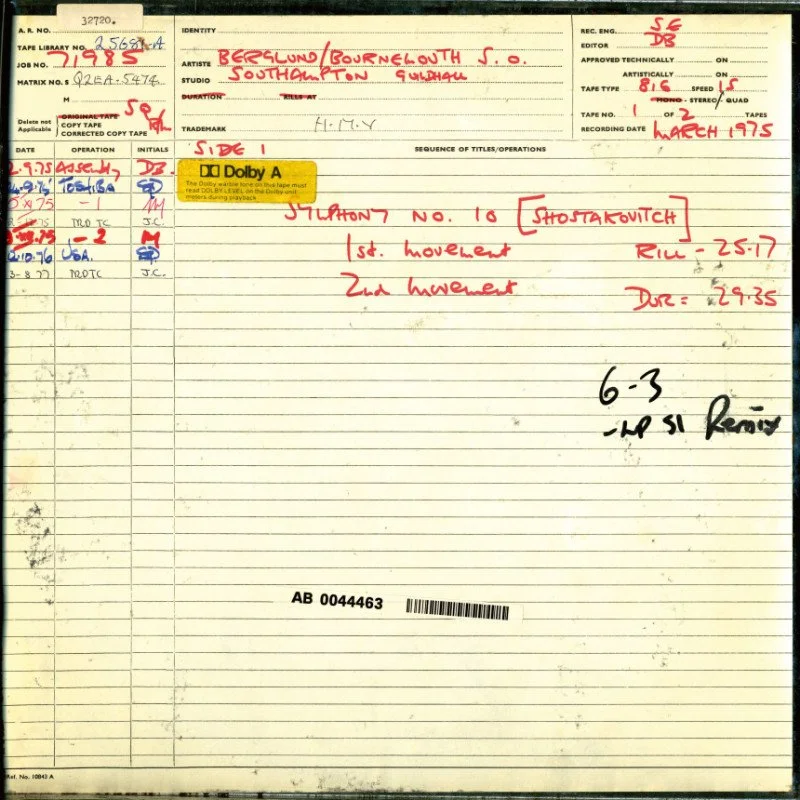 32720.
A. R. NO.
IDENTITY
REC. ENG. S.E
TAPE LIBRARY NO. 25681-A
EDITOR DB
JOB NO. 71985
ARTISTE BERGLUND/BOURNEMOUTH S. O.
APPROVED TECHNICALLY ON
MATRIX NO. S Q2EA-5474
STUDIO SOUTHAMPTON GUILDHALL
ARTISTICALLY ON
DURATION RILLS AT
TAPE TYPE 816 SPEED 15
M
MONO - STEREO/ QUAD
ORIGINAL TAPE
Delete not Applicable
COPY TAPE
CORRECTED COPY TAPE
TAPE NO. 1 OF 2 TAPES
TRADEMARK H.M.V
RECORDING DATE MARCH 1975
DATE OPERATION INITIALS
SIDE 1
SEQUENCE OF TITLES/OPERATIONS
2.9.75 ASSEMBLY DB.
TOSHIBA
Dolby A
The Dolby warble tone on this tape must
read DOLBY LEVEL on the Dolby unit
meters during playback
- 1
TRD TC J.C.
SYMPHONY NO. 10 [SHOSTAKOVITCH]
- 2 M
USA.
1st. Movement RILL - 25.17
3-8 77 TRDTC J.C.
2nd Movement DUR = 29.35
6-3
-LP S1 Remix
AB 0044463
Ref. No. 10843 A